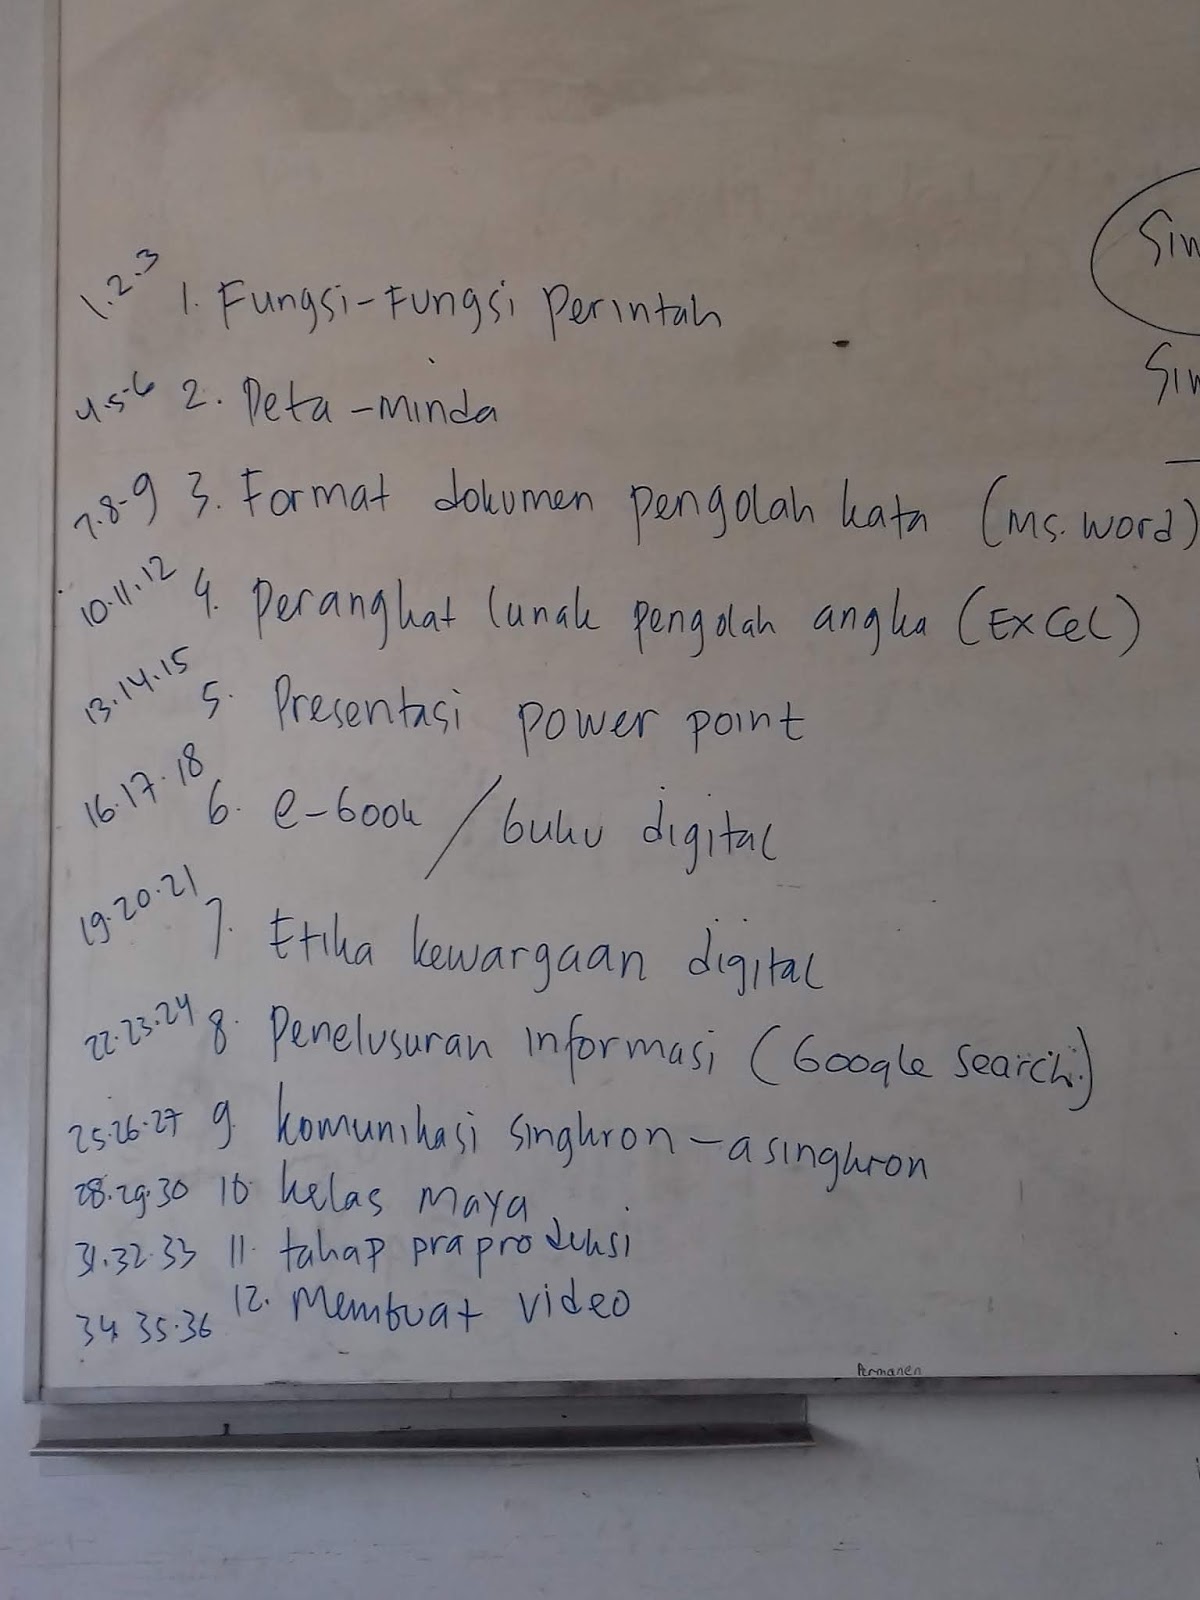 1.2.3 1. Fungsi-Fungsi Perintah
4.5.6 2. Peta-minda
7.8.9 3. Format dokumen pengolah kata (Ms. word)
10.11.12 4. Perangkat lunak pengolah angka (EXCEL)
13.14.15 5. Presentasi power point
16.17.18 6. e-book / buku digital
19.20.21 7. Etika kewargaan digital
22.23.24 8. Penelusuran informasi (Google Search)
25.26.27 9. komunikasi singkron-asingkron
28.29.30 10 kelas maya
31.32.33 11. tahap praproduksi
34 35.36 12. Membuat video
Sim
Sim
Permanen